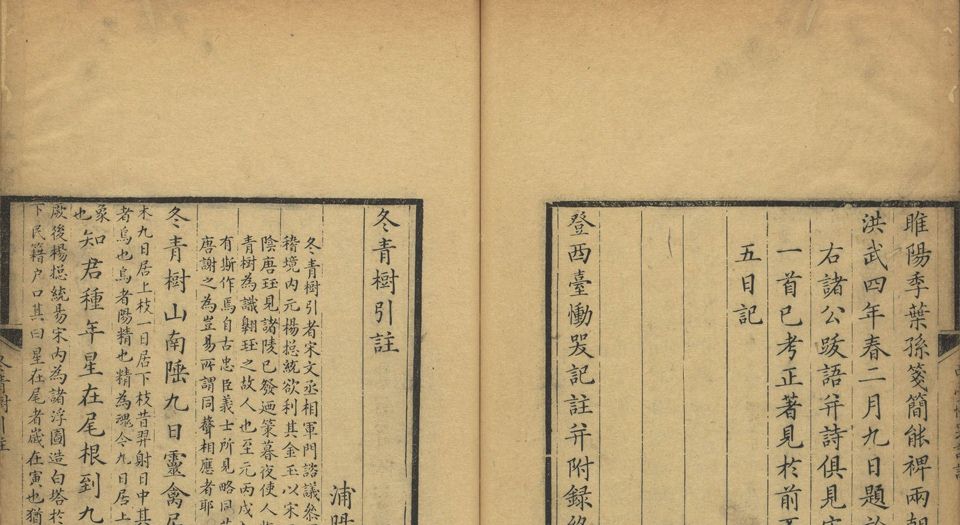 睢陽季葉孫箋簡能裨兩朝
洪武四年春二月九日題
右諸公跋語并詩俱見
一首已考正著見於前
五日記
登西臺慟哭記註并附録終
冬青樹引註
浦陽
冬青樹引者宋文丞相軍門諮議參
稽境内元楊揔統欲利其金玉以宋
陰唐珏見諸陵已發迺䇿暮夜使人
青樹為識翱珏之故人也至元丙戌
有斯作焉自古忠臣義士所見略同
唐謝之為豈易所謂同聲相應者耶
冬青樹山南陲九日靈禽居
木九日居上枝一日居下枝昔羿射日中其
者烏也烏者陽精也精為魂今九日居上
象
也知君種年星在尾根到九
厥後楊揔統易宋内為諸浮圖造白塔於
下民籍户口其曰星在尾者歲在寅也猶
冬青樹引註